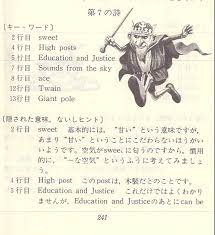 第7の詩
[キー・ワード]
2行目 sweet
4行目 High posts
5行目 Education and Justice
7行目 Sounds from the sky
8行目 ace
12行目 Twain
13行目 Giant pole
[隠された意味、ないしヒント]
2行目 sweet 基本的には、“甘い”という意味ですが、
あまり“甘い”ということにこだわらないほうがい
いようです。空気が sweet に匂うのですから、慣用
的に、“〜な空気”というふうに考えてみましょ
う。
4行目 High post このpostは、木製だとのことです。
5行目 Education and Justice これだけではよくわかり
ませんが、Education and Justiceのあとにcan be
241